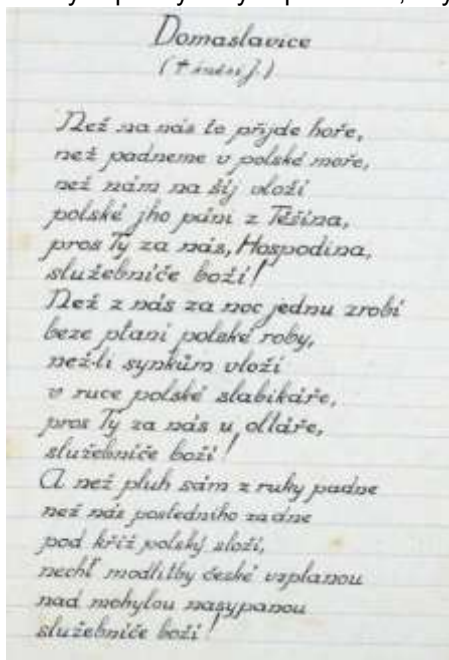 Domaslavice
Než na nás to přijde hoře,
než padneme v polské moře,
než nám na šíj vloží
polské jho páni z Těšína,
pros Ty za nás, Hospodina,
služebníče boží!
Než z nás za noc jednu zrobí
beze ptaní polské roby,
než-li synkům vloží
v ruce polské slabikáře,
pros Ty za nás u oltáře,
služebníče boží!
A než pluh sám z ruky padne
než nás posledního za dne
pod kříž polský složí,
nechť modlitby české vzplanou
nad mohylou nasypanou
služebníče boží!